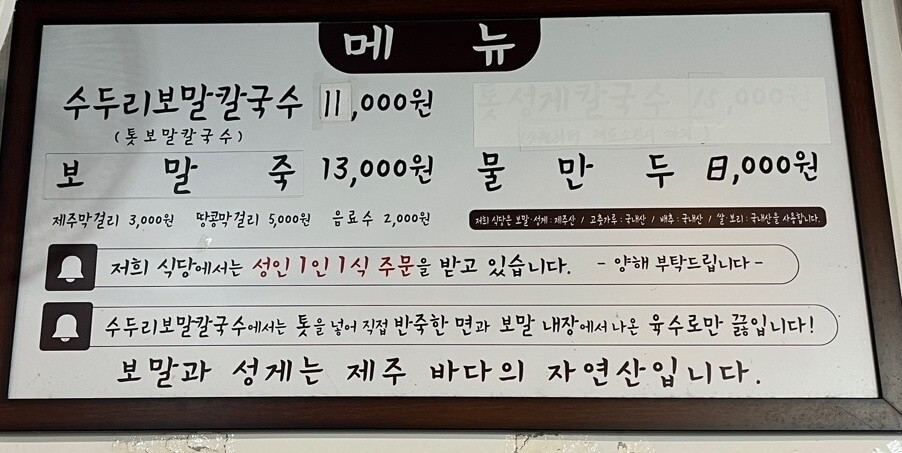 메 뉴
수두리보말칼국수 11,000원
(톳보말칼국수)
톳성게칼국수 15,000원
보 말 죽 13,000원
물 만 두 8,000원
제주막걸리 3,000원 땅콩막걸리 5,000원 음료수 2,000원
저희 식당은 보말·성게 : 제주산 / 고춧가루 : 국내산 / 배추 : 국내산 / 쌀·보리 : 국내산을 사용합니다.
저희 식당에서는 성인 1인 1식 주문을 받고 있습니다. - 양해 부탁드립니다 -
수두리보말칼국수에서는 톳을 넣어 직접 반죽한 면과 보말 내장에서 나온 육수로만 끓입니다!
보말과 성게는 제주 바다의 자연산입니다.